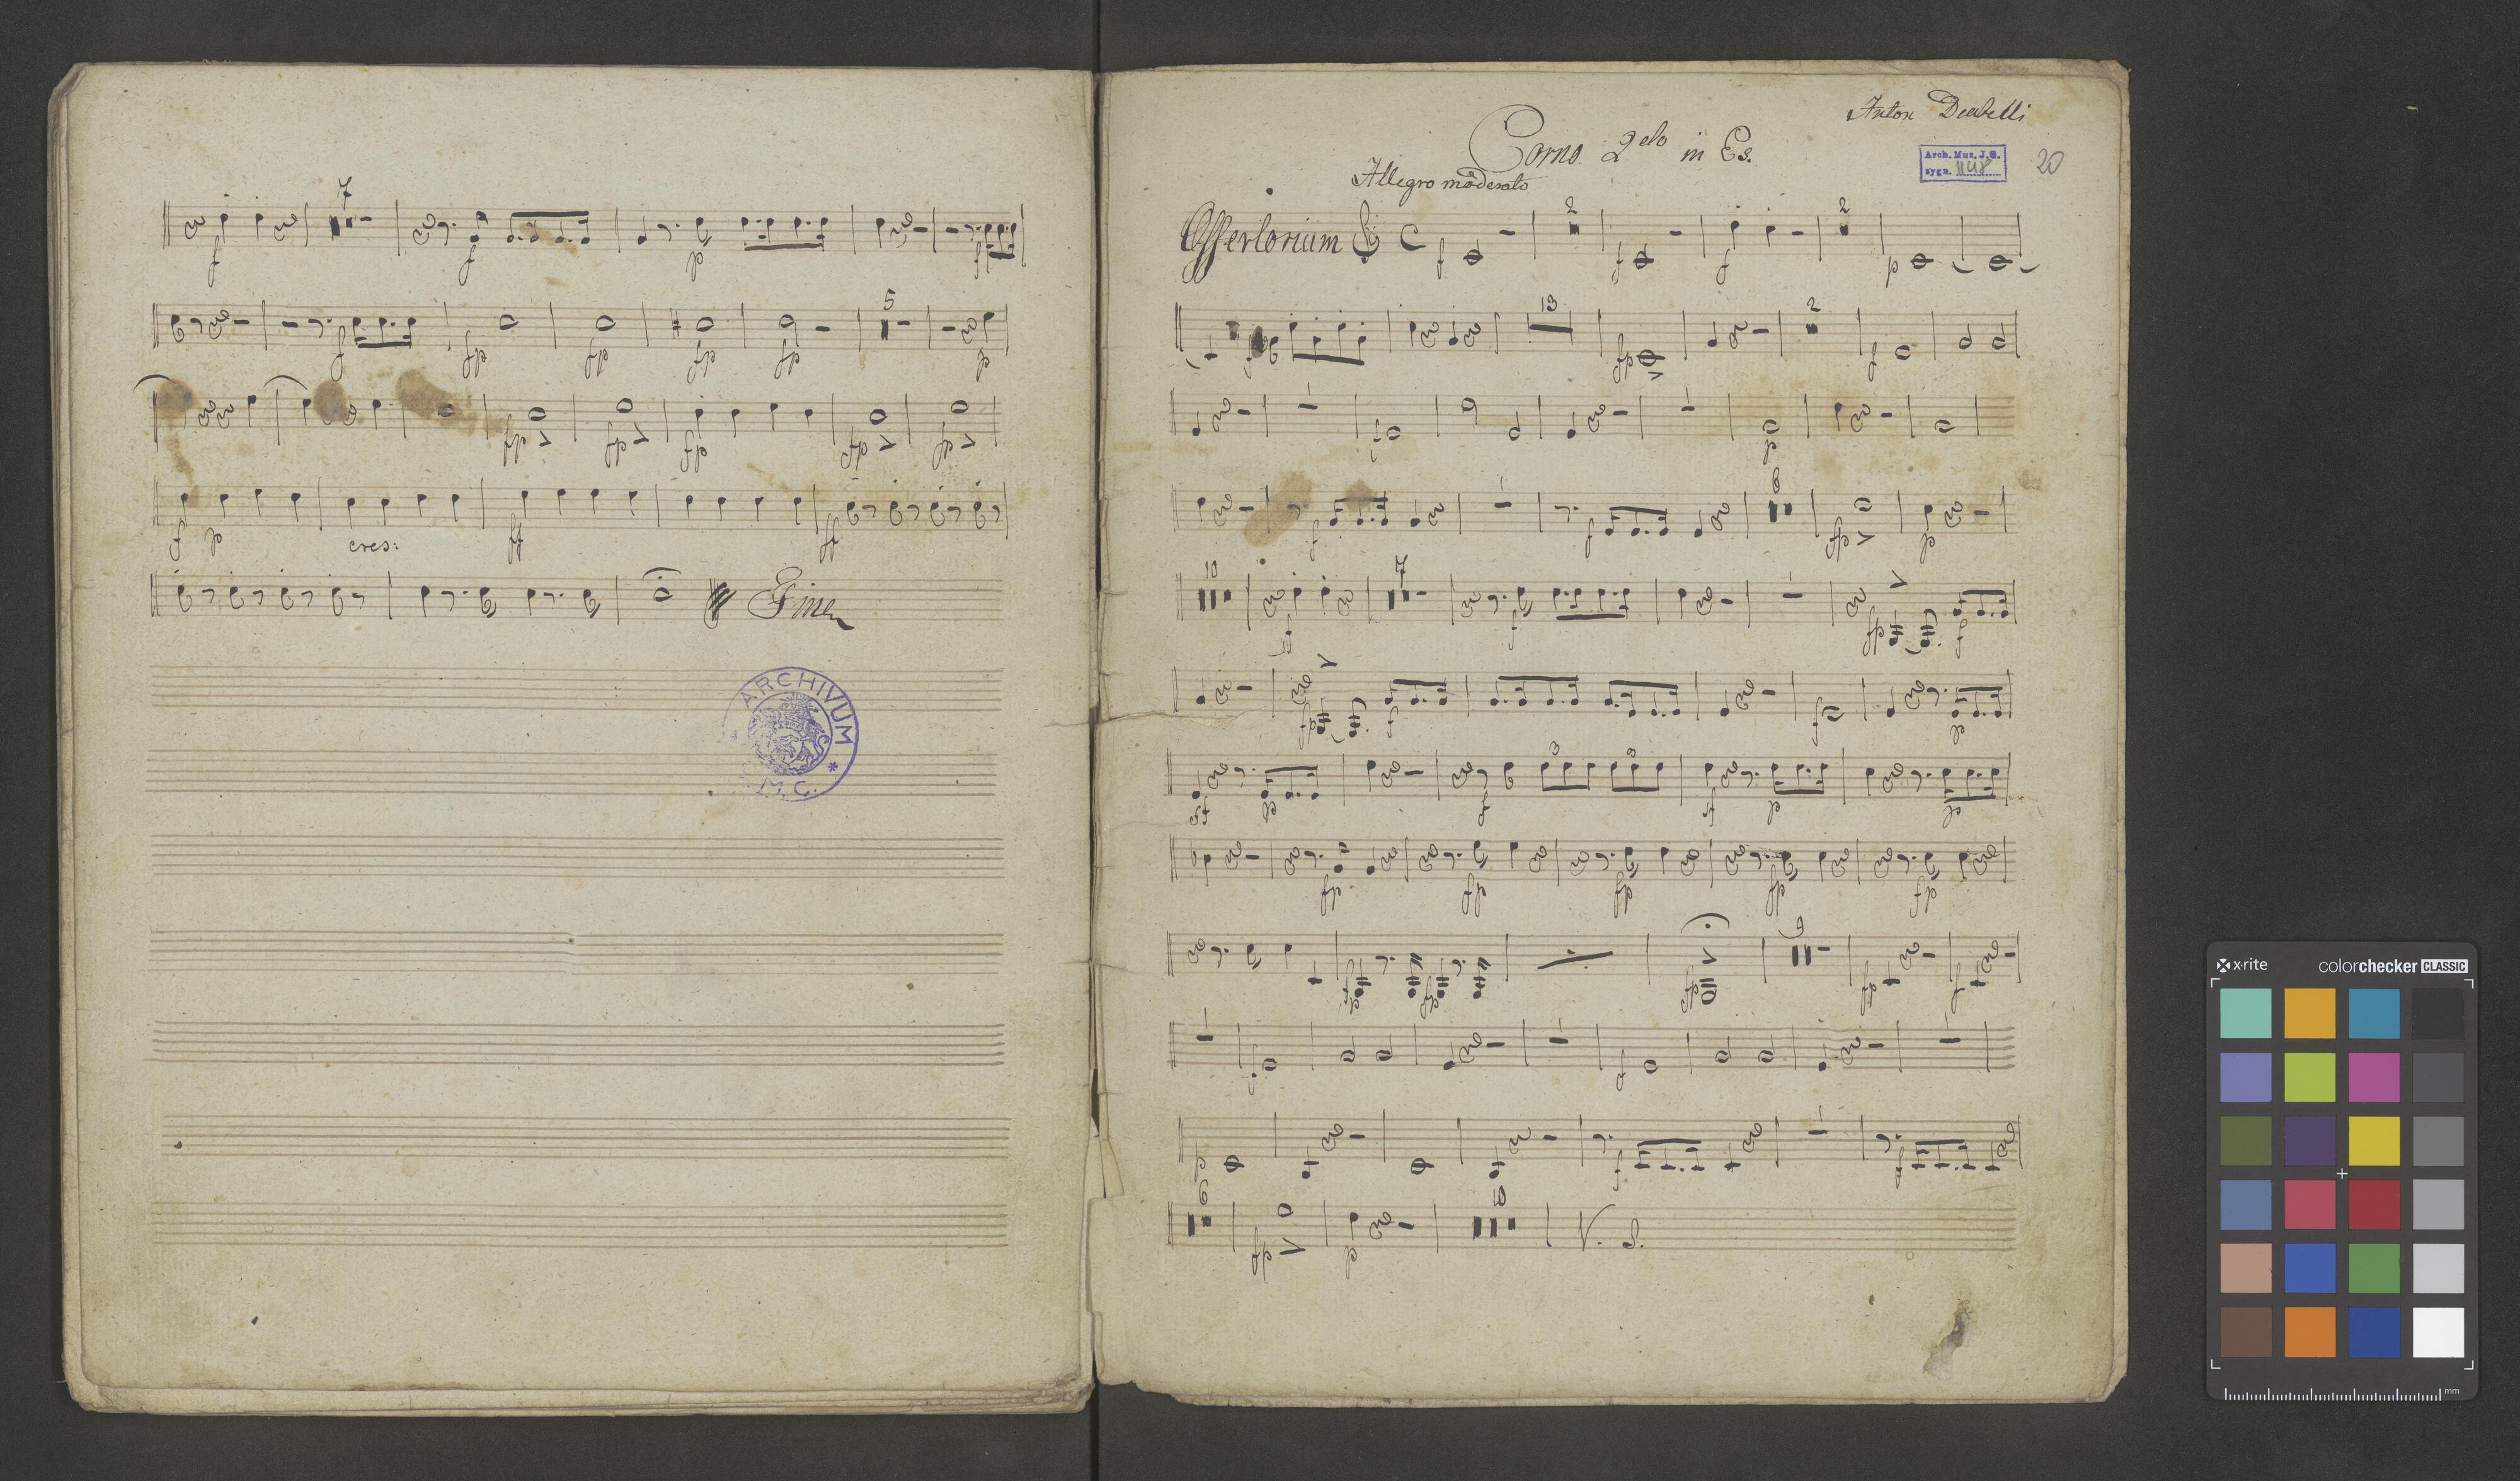 7
f
f
p
f
f
fp
fp
fp
fp
5
p
fp
fp
fp
fp
fp
f
p
cres:
ff
ff
Fine
ARCHIVUM
M.C.
Anton Deabelli
Corno 2do in Es.
Arch. Muz. J.G.
sygn. 1148
20
Allegro moderato
Offertorium
C
f
2
f
f
2
p
13
fp
2
f
p
f
f
6
fp
p
10
7
f
fp
f
fp
f
f
p
p
f
3
3
f
p
p
fp
fp
fp
fp
fp
fp
9
fp
f
f
p
f
f
6
fp
p
10
V. S.
x-rite
colorchecker CLASSIC
mm